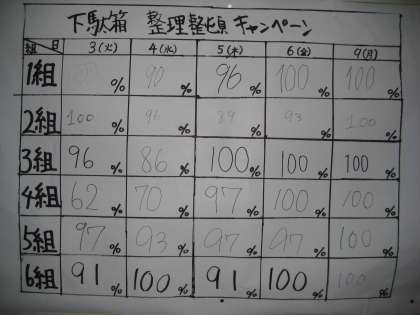 下駄箱 整理整頓 キャンペーン
組 日 3(火) 4(水) 5(木) 6(金) 9(月)
1組 % 90% 96% 100% 100%
2組 100% 96% 89% 93% 100%
3組 96% 86% 100% 100% 100%
4組 62% 70% 97% 100% 100%
5組 97% 93% 97% 97% 100%
6組 91% 100% 91% 100% 100%